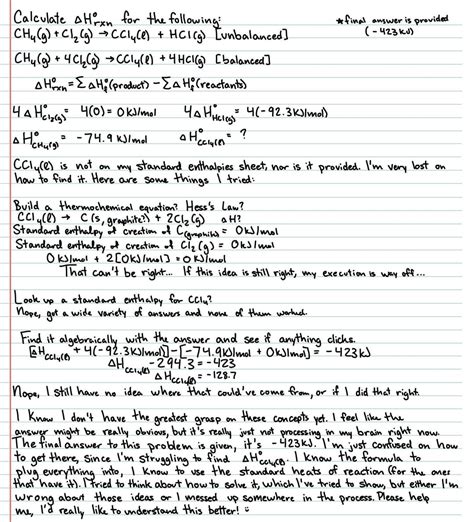 Calculate ΔH°rxn for the following:
*final answer is provided (-423 kJ)
CH₄(g) + Cl₂(g) → CCl₄(l) + HCl(g) [unbalanced]
CH₄(g) + 4Cl₂(g) → CCl₄(l) + 4HCl(g) [balanced]
ΔH°rxn = ΣΔH°f(product) - ΣΔH°f(reactants)
4ΔH°Cl₂(g) = 4(0) = 0 kJ/mol 4ΔH°HCl(g) = 4(-92.3 kJ/mol)
ΔH°CH₄(g) = -74.9 kJ/mol ΔH°CCl₄(l) = ?
CCl₄(l) is not on my standard enthalpies sheet, nor is it provided. I'm very lost on
how to find it. Here are some things I tried:
Build a thermochemical equation? Hess's Law?
CCl₄(l) → C(s, graphite?) + 2Cl₂(g) ΔH?
Standard enthalpy of creation of C(graphite) = 0 kJ/mol
Standard enthalpy of creation of Cl₂(g) = 0 kJ/mol
0 kJ/mol + 2[0 kJ/mol] = 0 kJ/mol
That can't be right... If this idea is still right, my execution is way off...
Look up a standard enthalpy for CCl₄?
Nope, got a wide variety of answers and none of them worked.
Find it algebraically with the answer and see if anything clicks.
[ΔH CCl₄(l) + 4(-92.3 kJ/mol)] - [-74.9 kJ/mol + 0 kJ/mol] = -423 kJ
ΔH CCl₄(l) - 294.3 = -423
ΔH CCl₄(l) = -128.7
Nope, I still have no idea where that could've come from, or if I did that right.
I know I don't have the greatest grasp on these concepts yet. I feel like the
answer might be really obvious, but it's really just not processing in my brain right now.
The final answer to this problem is given, it's -423 kJ. I'm just confused on how
to get there, since I'm struggling to find ΔH°CCl₄(l). I know the formula to
plug everything into, I know to use the standard heats of reaction (for the ones
that have it). I tried to think about how to solve it, which I've tried to show, but either I'm
wrong about those ideas or I messed up somewhere in the process. Please help
me, I'd really like to understand this better! :)